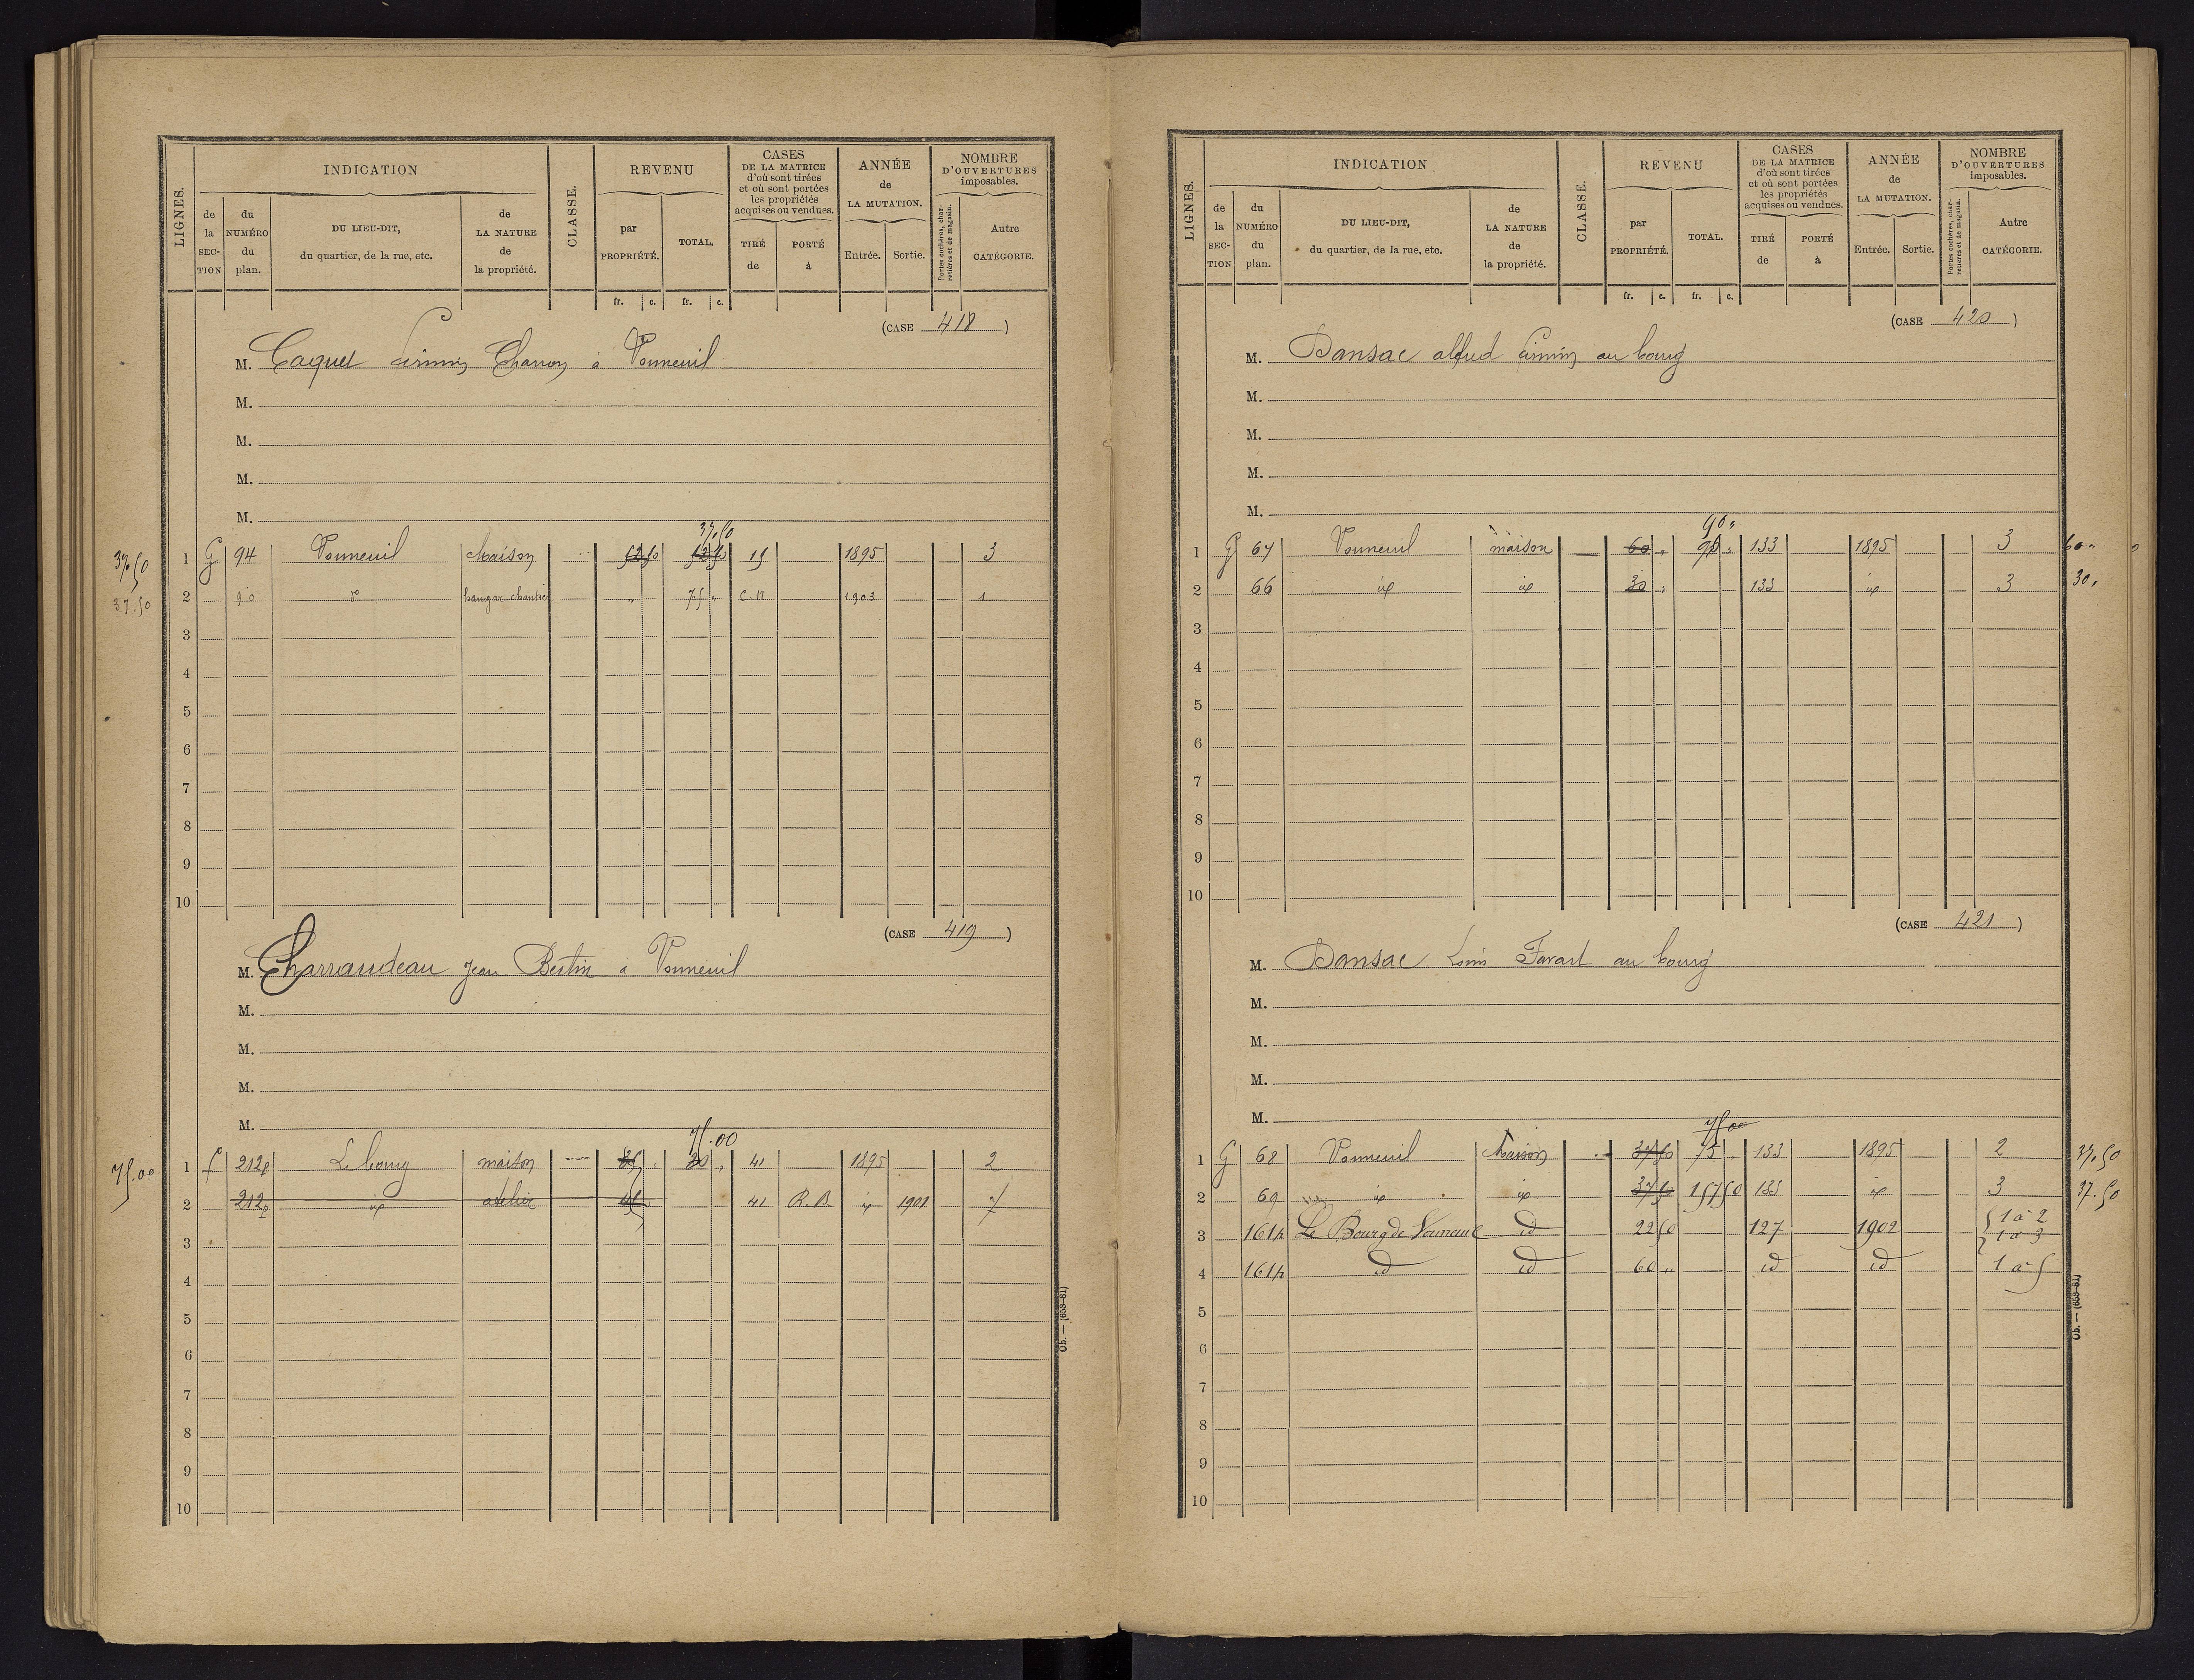 LIGNES.
INDICATION
de la SECTION
du NUMÉRO du plan.
DU LIEU-DIT, du quartier, de la rue, etc.
de LA NATURE de la propriété.
CLASSE.
REVENU
par PROPRIÉTÉ.
TOTAL.
CASES DE LA MATRICE d'où sont tirées et où sont portées les propriétés acquises ou vendues.
TIRÉ de
PORTÉ à
ANNÉE de LA MUTATION.
Entrée.
Sortie.
NOMBRE D'OUVERTURES imposables.
Portes cochères, charretières et de magasin.
Autre CATÉGORIE.
fr. c. fr. c.
(CASE 418)
M. Caquet Firmin Charron à Vonneuil
M.
M.
M.
M.
37.50
37.50 1 G 94 Vonneuil Maison 52 50 52 50 15 1895 3
37.50 2 90 do hangar chantier " 75 " C.N 1903 1
3
4
5
6
7
8
9
10
(CASE 419)
M. Charraudeau Jean Bertin à Vonneuil
M.
M.
M.
M.
75.00
75.00 1 f 212p Le bourg maison 41 1895 2
2 212p id atelier 41 R.B. id 1901 7
3
4
5
6
7
8
9
10
Ob. — (653-81)
LIGNES.
INDICATION
de la SECTION
du NUMÉRO du plan.
DU LIEU-DIT, du quartier, de la rue, etc.
de LA NATURE de la propriété.
CLASSE.
REVENU
par PROPRIÉTÉ.
TOTAL.
CASES DE LA MATRICE d'où sont tirées et où sont portées les propriétés acquises ou vendues.
TIRÉ de
PORTÉ à
ANNÉE de LA MUTATION.
Entrée.
Sortie.
NOMBRE D'OUVERTURES imposables.
Portes cochères, charretières et de magasin.
Autre CATÉGORIE.
fr. c. fr. c.
(CASE 420)
M. Dansac alfred Firmin au bourg
M.
M.
M.
M.
90 "
1 G 67 Vonneuil maison 60 " 90 " 133 1895 3 60 "
2 66 id id 30 " 133 id 3 30 "
3
4
5
6
7
8
9
10
(CASE 421)
M. Dansac Louis Favart au bourg
M.
M.
M.
M.
75 00
1 G 68 Vonneuil Maison 37 50 75 133 1895 2 37.50
2 69 id id 37 50 157 50 133 id 3 37.50
3 161p Le Bourg de Vonneuil id 22 50 127 1902 1 à 2 1 à 3
4 161p id id 60 " id id 1 à 5
5
6
7
8
9
10
Ob. — (658-81)